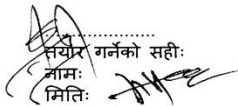 ...............
तयार गर्नेको सहीः
नामः
मितिः